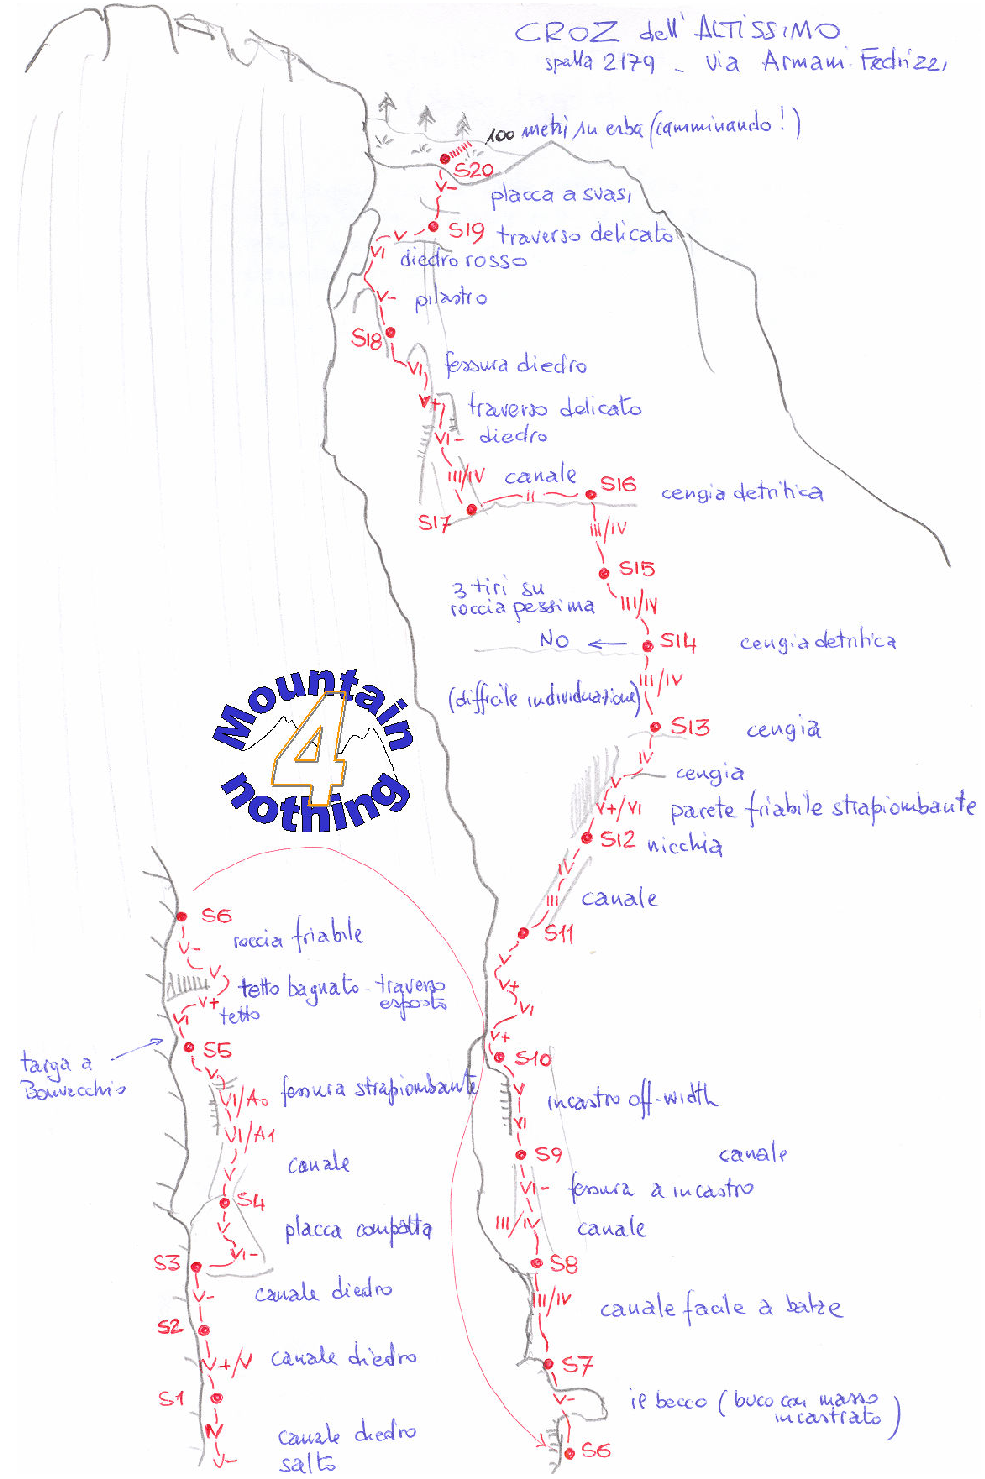 CROZ dell'ALTISSIMO
spalla 2179 - via Armani-Fedrizzi
100 metri su erba (camminando!)
S20
V-
placca a svasi
S19 traverso delicato
V
VI
diedro rosso
V- pilastro
S18
VI fessura diedro
V+ traverso delicato
VI- diedro
III/IV canale
II
S16
cengia detritica
S17
III/IV
S15
3 tiri su
roccia pessima
III/IV
NO
S14
cengia detritica
III/IV
(difficile individuazione)
S13 cengia
IV
cengia
V
V+/VI parete friabile strapiombante
S12 nicchia
IV
III canale
S11
V
V+
VI
V+
S10
V
incastro off-width
VI
S9
canale
VI- fessura a incastro
III/IV canale
S8
III/IV canale facile a balze
S7
V- il becco (buco con masso
incastrato)
S6
Mountain
4
nothing
S6
V- roccia friabile
V
tetto bagnato - traverso
esposto
V+
VI tetto
S5
targa a
Bonvecchio
V
VI/A0 fessura strapiombante
VI/A1
canale
V
S4
V placca compatta
VI-
S3
canale diedro
V-
S2
V+/V canale diedro
S1
IV
canale diedro
V- salto